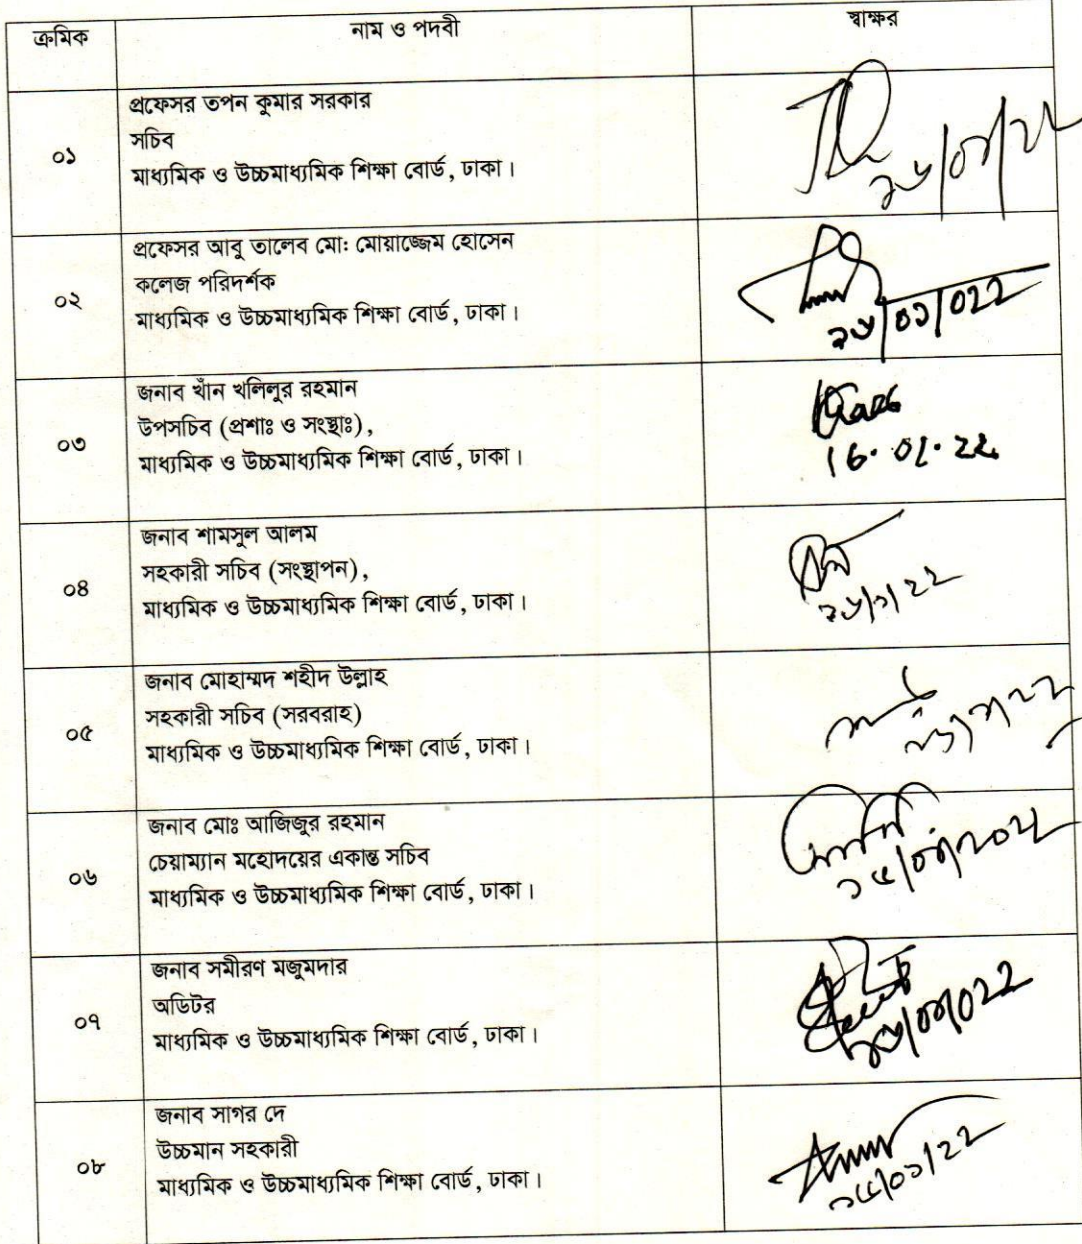 ক্রমিক নাম ও পদবী স্বাক্ষর
প্রফেসর তপন কুমার সরকার
সচিব
০১
মাধ্যমিক ও উচ্চমাধ্যমিক শিক্ষা বোর্ড, ঢাকা।
প্রফেসর আবু তালেব মো: মোয়াজ্জেম হোসেন
কলেজ পরিদর্শক
০২
মাধ্যমিক ও উচ্চমাধ্যমিক শিক্ষা বোর্ড, ঢাকা।
জনাব খাঁন খলিলুর রহমান
উপসচিব (প্রশাঃ ও সংস্থাঃ),
০৩
মাধ্যমিক ও উচ্চমাধ্যমিক শিক্ষা বোর্ড, ঢাকা।
16.01.22
জনাব শামসুল আলম
সহকারী সচিব (সংস্থাপন),
০৪
মাধ্যমিক ও উচ্চমাধ্যমিক শিক্ষা বোর্ড, ঢাকা।
জনাব মোহাম্মদ শহীদ উল্লাহ
সহকারী সচিব (সরবরাহ)
০৫
মাধ্যমিক ও উচ্চমাধ্যমিক শিক্ষা বোর্ড, ঢাকা।
জনাব মোঃ আজিজুর রহমান
চেয়াম্যান মহোদয়ের একান্ত সচিব
০৬
মাধ্যমিক ও উচ্চমাধ্যমিক শিক্ষা বোর্ড, ঢাকা।
জনাব সমীরণ মজুমদার
অডিটর
০৭
মাধ্যমিক ও উচ্চমাধ্যমিক শিক্ষা বোর্ড, ঢাকা।
জনাব সাগর দে
উচ্চমান সহকারী
০৮
মাধ্যমিক ও উচ্চমাধ্যমিক শিক্ষা বোর্ড, ঢাকা।